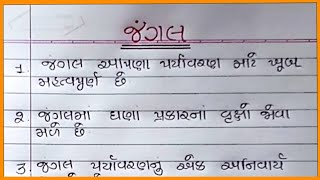 જંગલ
1. જંગલ આપણા પર્યાવરણ માટે ખૂબ
મહત્વપૂર્ણ છે
2. જંગલમાં ઘણા પ્રકારનાં વૃક્ષો જોવા
મળે છે
3. જંગલ પર્યાવરણનું એક અનિવાર્ય